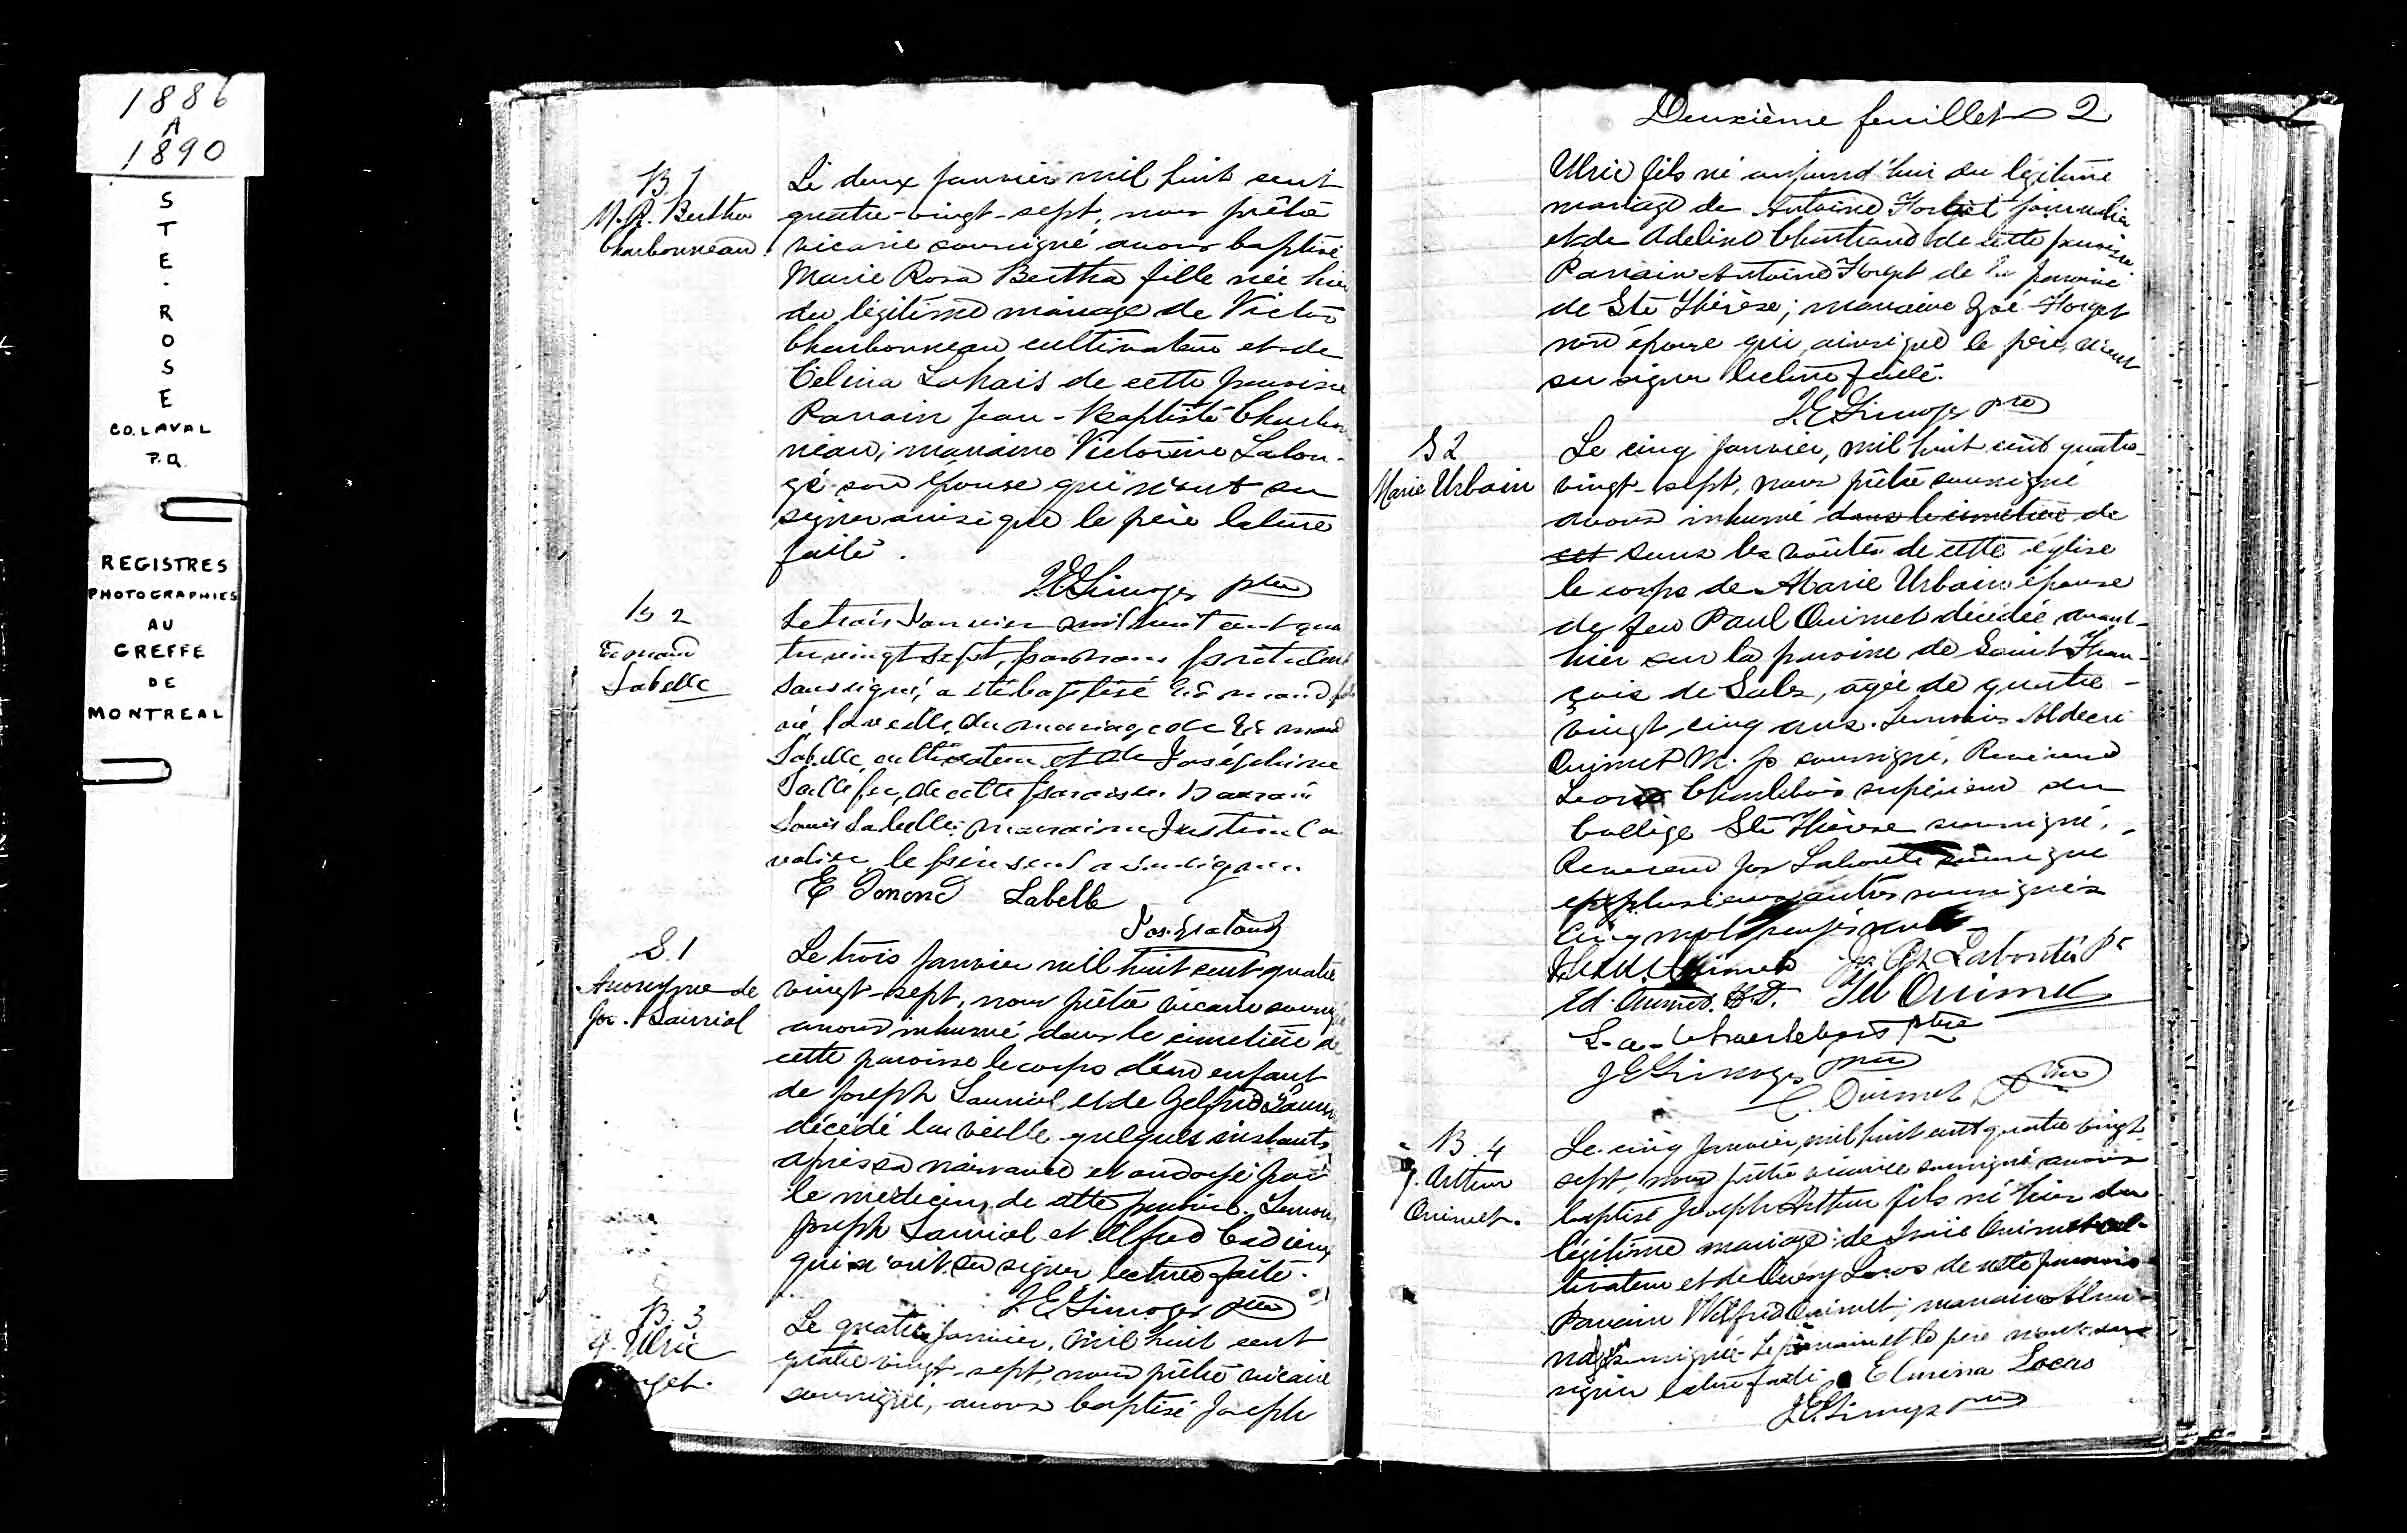 1886
A
1890
STE. ROSE
CO. LAVAL
P.Q.
REGISTRES
PHOTOGRAPHIES
AU
GREFFE
DE
MONTREAL
B 1
M. R. Bertha
Charbonneau
Le deux janvier mil huit cent
quatre-vingt-sept, nous prêtre
vicaire soussigné avons baptisé
Marie Rosa Bertha fille née hier
du légitime mariage de Victor
Charbonneau cultivateur et de
Celina Labais de cette paroisse
Parrain Jean-Baptiste Charbon
neau; marraine Victorine Labon-
gé son épouse qui n'ont su
signer ainsi que le père lecture
faite.
J.E. Limoges ptre
B 2
Edmond
Labelle
Le trois Janvier mil huit cent qua
tre vingt sept, par nous prêtre curé
soussigné, a été baptisé Edmond fils
né la veille, du mariage de Edmond
Labelle cultivateur et de Joséphine
de cette paroisse. Parrain
Louis Labelle, marraine Justine Ca
le père seul a su signer
Edmond Labelle
S. 1
Anonyme de
Jos. Sauriol
Le trois Janvier mil huit cent quatre
vingt-sept, nous prêtre vicaire soussigné
avons inhumé dans le cimetière de
cette paroisse le corps d'un enfant
de Joseph Sauriol et de
décédé la veille quelques instants
après sa naissance et ondoyé par
le médecin, de cette paroisse. Témoins
Joseph Sauriol et Alfred Cadieux
qui n'ont su signer lecture faite.
J.E. Limoges ptre
B. 3
J. Ulric
Le quatre janvier, mil huit cent
quatre vingt-sept, nous prêtre vicaire
soussigné, avons baptisé Joseph
Deuxième feuillet 2
Ulric fils né aujourd'hui du légitime
mariage de Antoine Forget journalier
et de Adeline Chartrand de cette paroisse.
Parrain Antoine Forget de la paroisse
de Ste Thérèse; marraine Zoé Forget
son épouse qui ainsi que le père, n'ont
su signer lecture faite.
J.E. Limoges ptre
S 2
Marie Urbain
Le cinq janvier, mil huit cent quatre-
vingt-sept, nous prêtre soussigné
avons inhumé dans le cimetière de
cet sous les voûtes de cette église
le corps de Marie Urbain épouse
de feu Paul Ouimet décédée avant-
hier sur la paroisse de Saint Fran-
çois de Sales, agée de quatre-
vingt, cinq ans. Témoins Aldéric
Ouimet M. p soussigné, Révérend
Charlebois supérieur du
Collège Ste Thérèse soussigné.
Révérend Jos Labonté soussigné
et plusieurs autres soussignés
Cinq mots rayés nuls
Ouimet Labonté Pr
Ed. Ouimet Ouimet
L. a. Charlebois ptre
J E Limoges ptre
C. Ouimet Ptre
B. 4
J. Arthur
Ouimet.
Le cinq janvier, mil huit cent quatre vingt-
sept, nous prêtre vicaire soussigné avons
baptisé Joseph Arthur fils né hier du
légitime mariage de Ouimet cul-
tivateur et de Locas de cette paroisse
Parrain Wilfrid Ouimet; marraine
soussignée. Le parrain et le père n'ont su
signer lecture faite. Elmina Locas
J.E. Limoges ptre